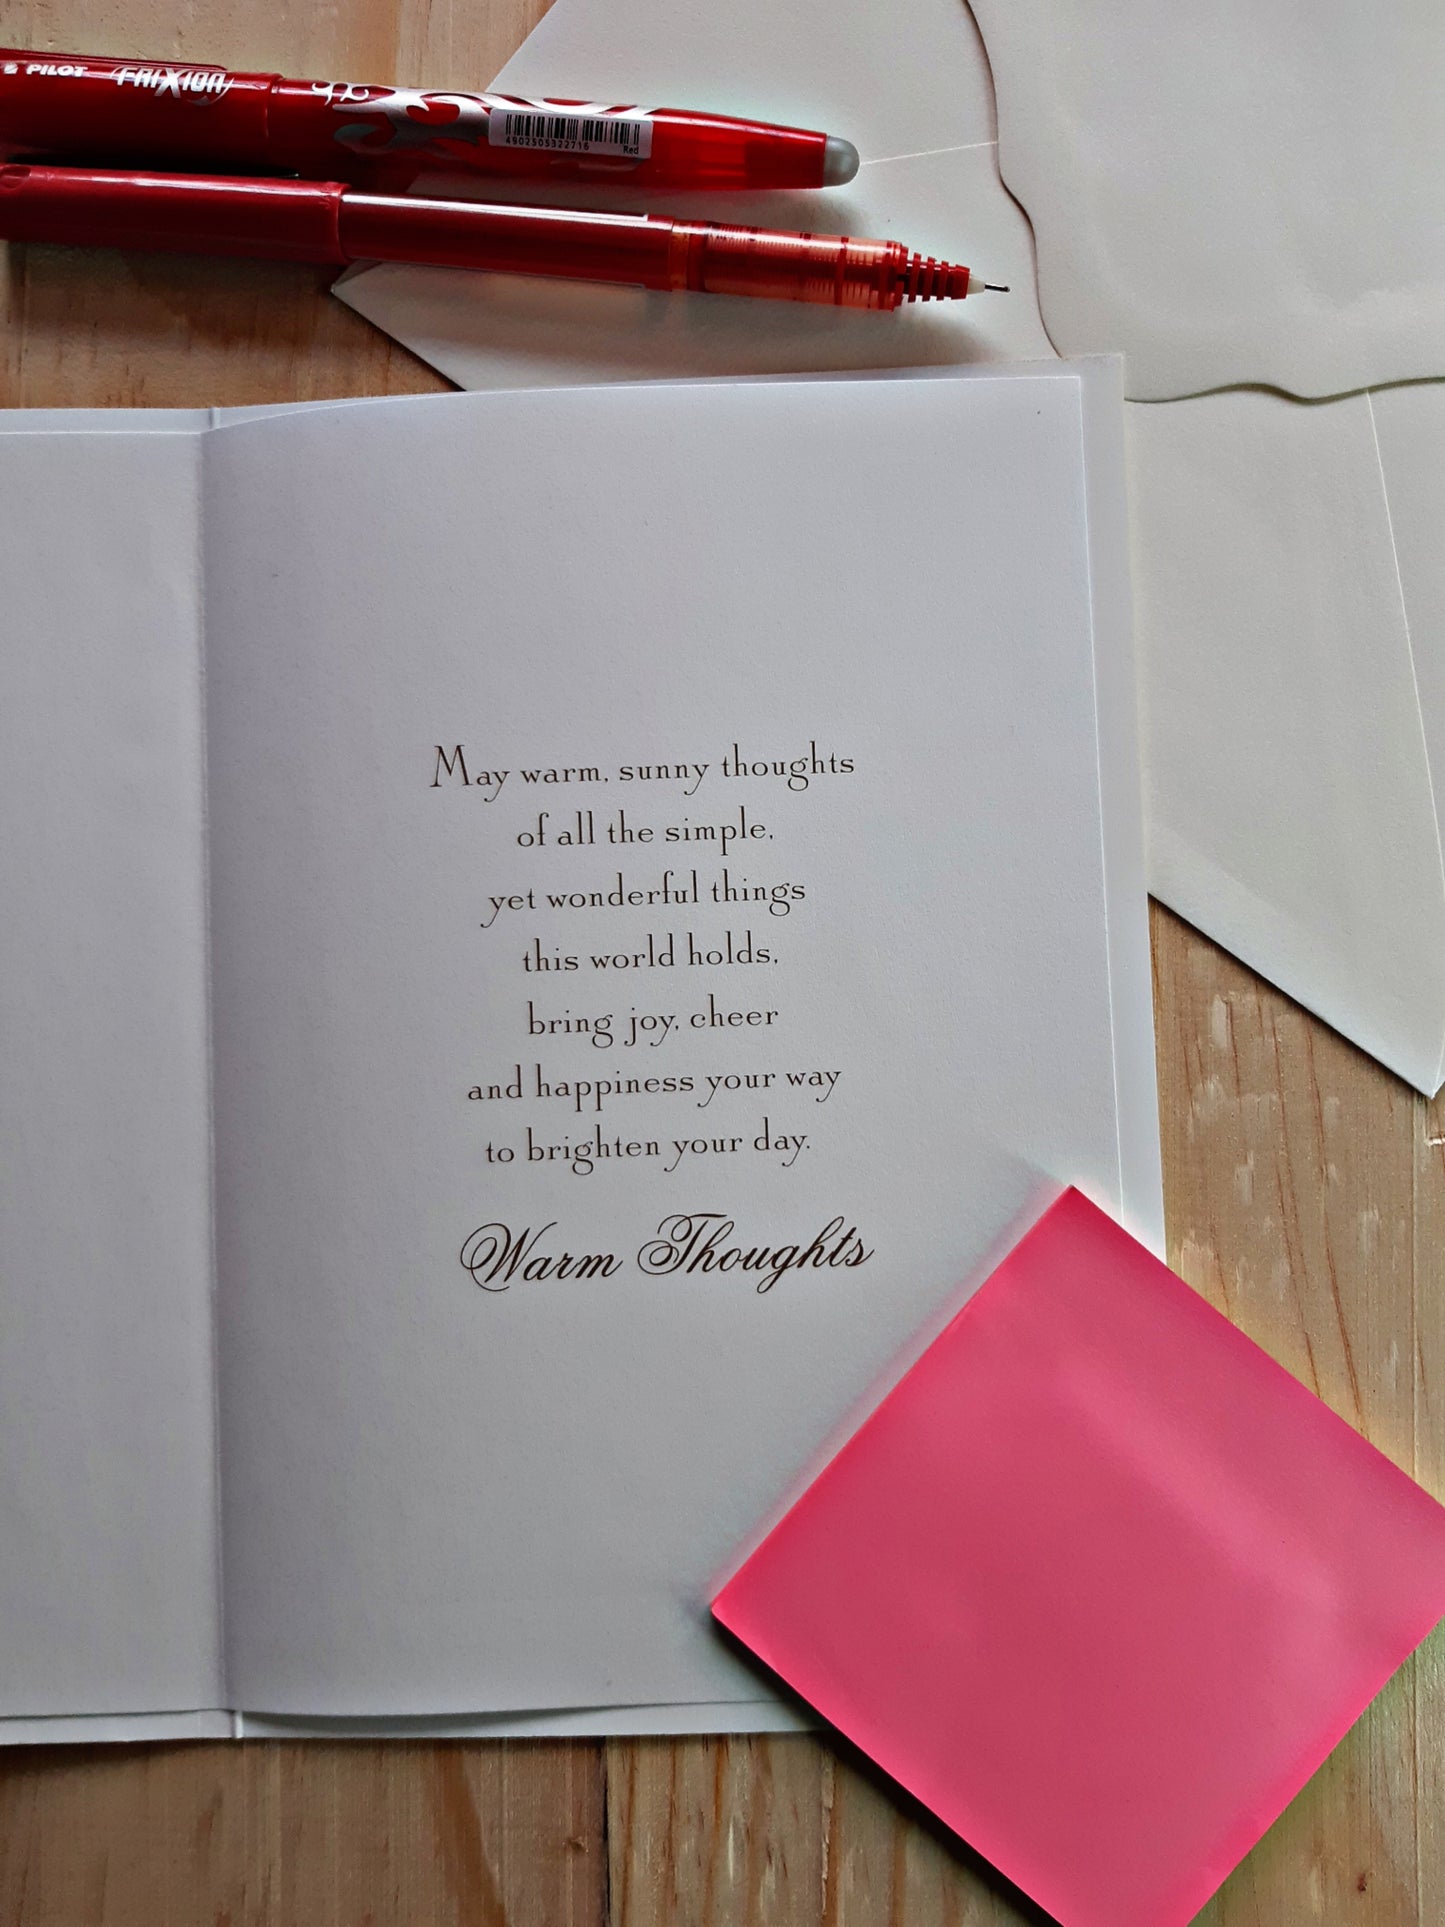 PILOT FRIXION
4902505322716 Red
May warm, sunny thoughts
of all the simple,
yet wonderful things
this world holds,
bring joy, cheer
and happiness your way
to brighten your day.
Warm Thoughts